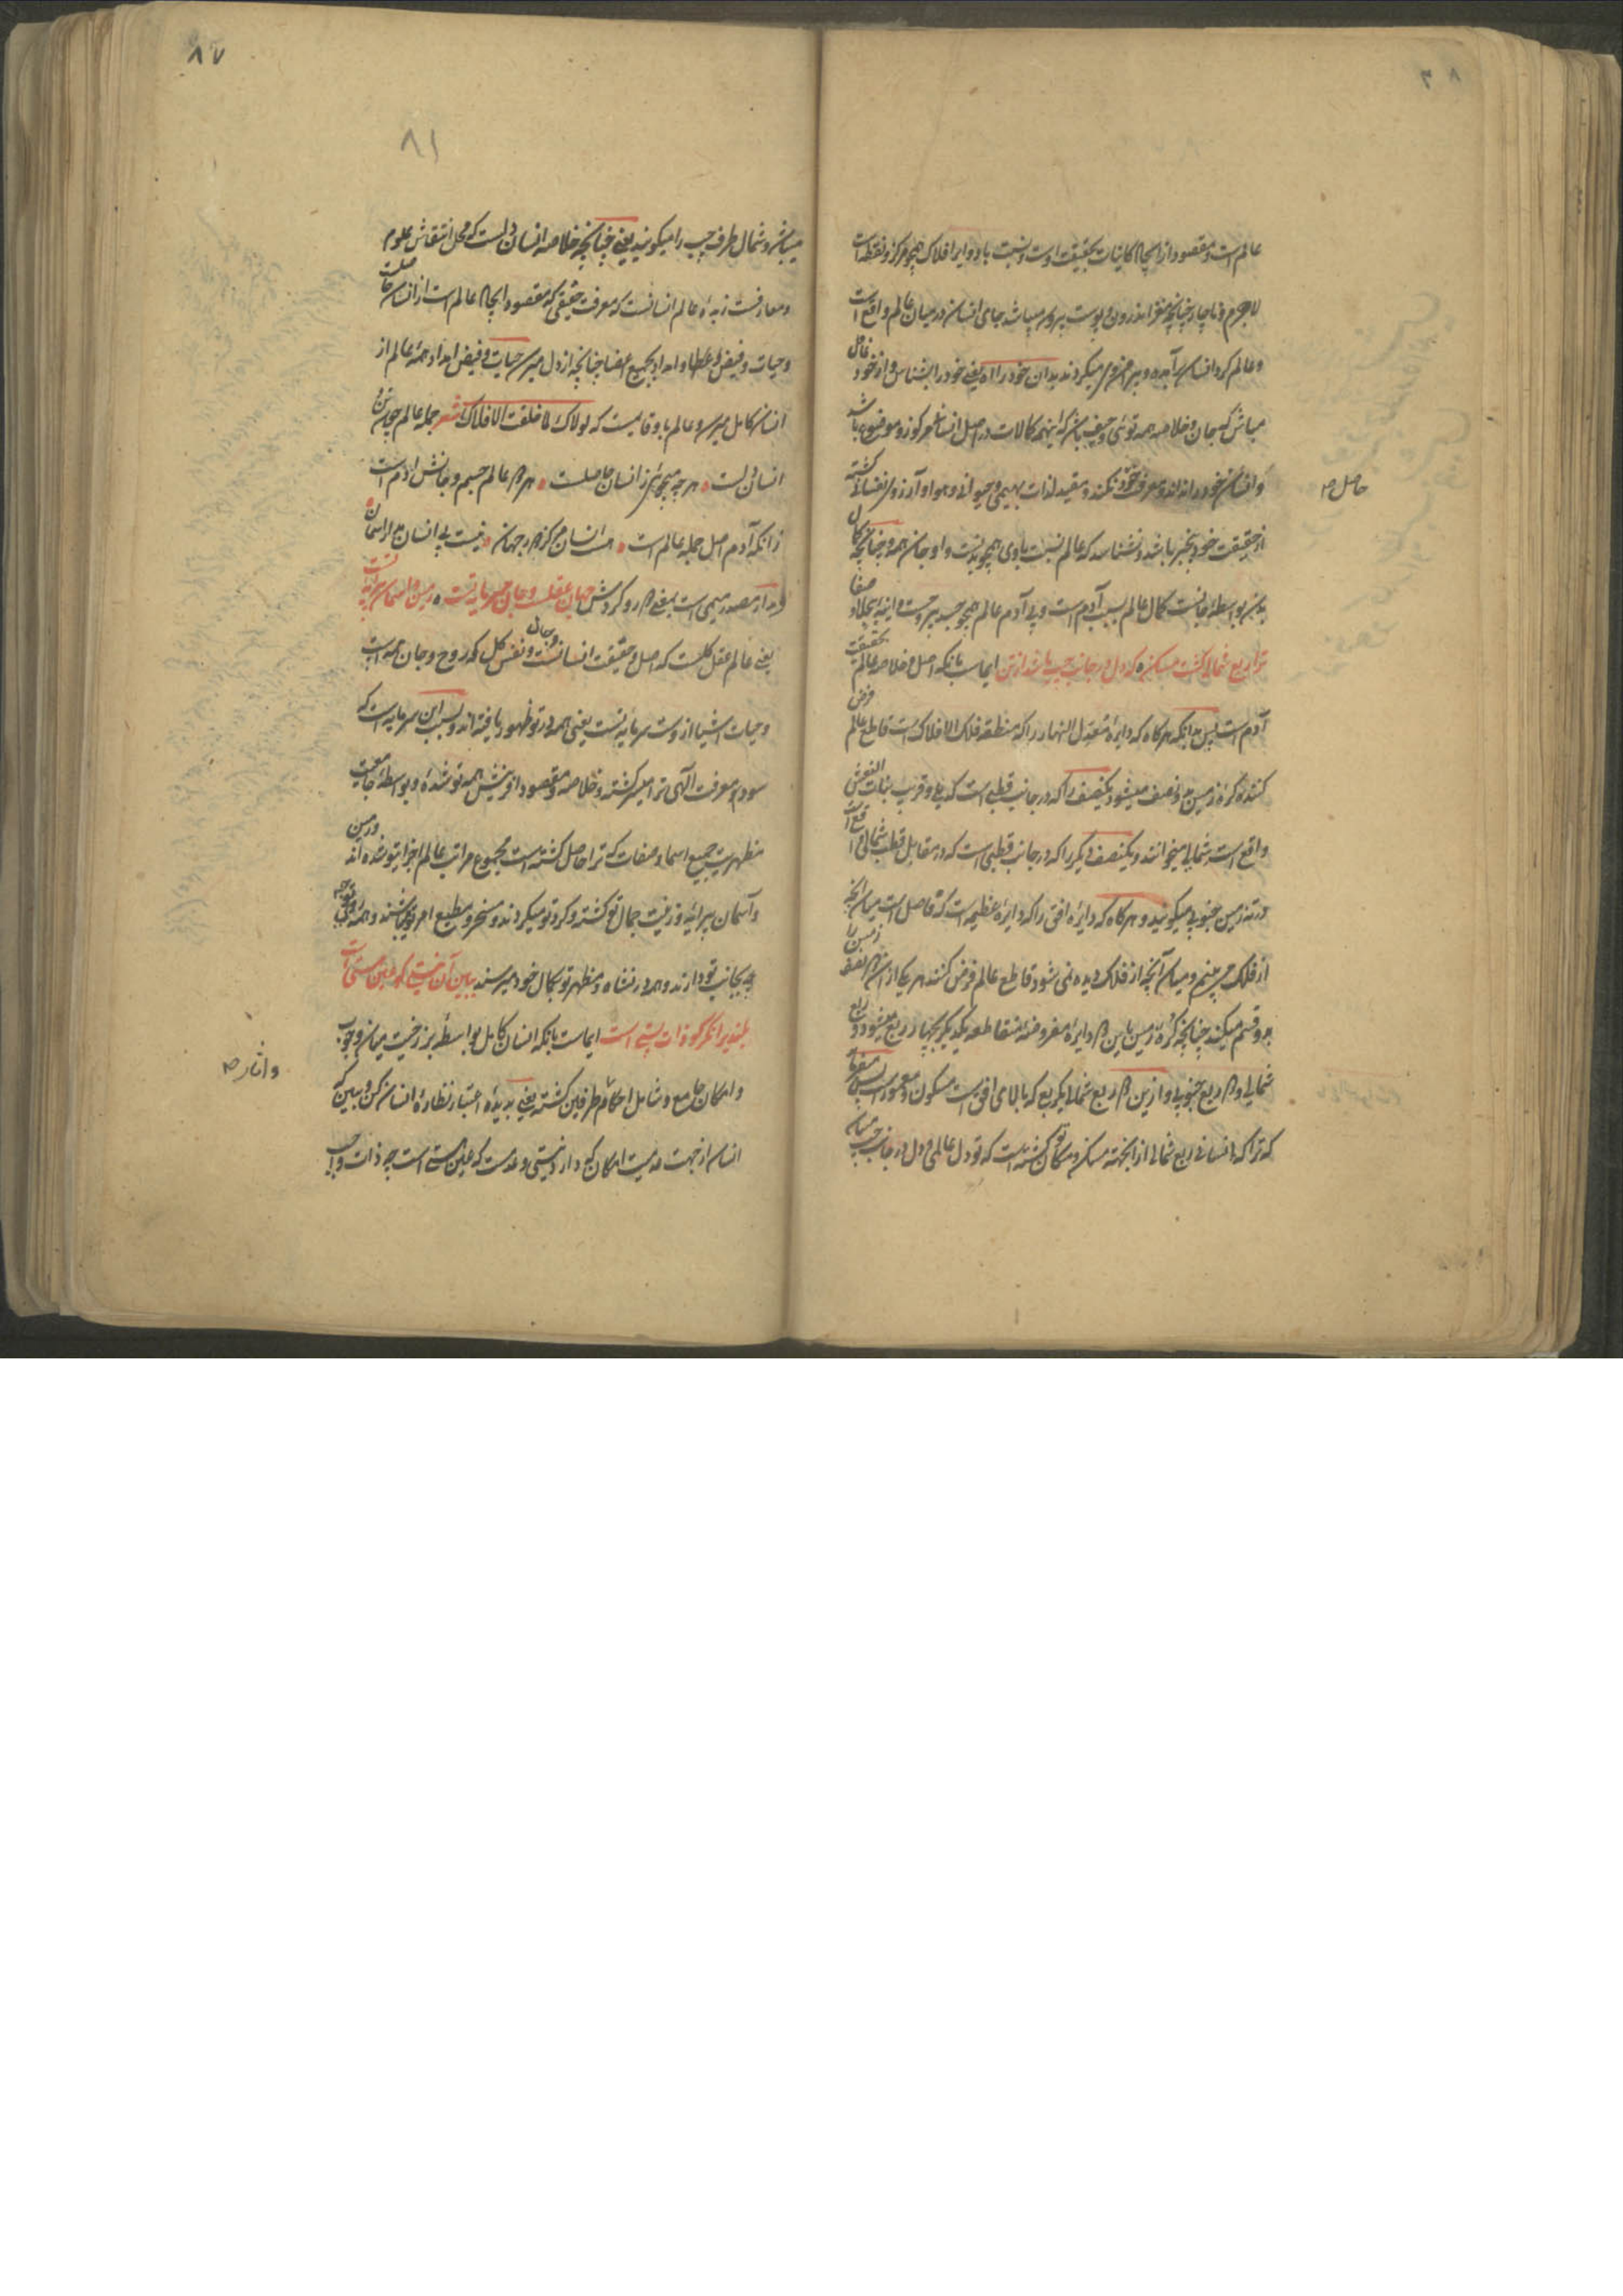 ۸۶
عالم است و مقصود از ایجاد کاینات بحقیقت اوست و نسبت با دوایر افلاک همچو مرکز و نقطه است
لاجرم و ناچار چنانچه مغز اندرون و پوست بیرون میباشد جای انسان در میان عالم واقع است
و عالم کرد انسان برآمده و بیرامن وی میکردند بدان خود را اه یعنی خود را بشناس و از خود غافل
مباش که جان و خلاصه همه توئی و حیف باشد که اینهمه کمالات در اصل انسان مرکوز و موضوع باشد
و انسان خود را نداند و معرفت خود نکند و مقید لذات بهیمی و حیوانی و هوا و آرزوی نفسانی کشته
از حقیقت خود بیخبر باشد و نشناسد که عالم نسبت باوی همچو بدنست و او جان همه و چنانچه کمال
بدن بواسطه جانست کمال عالم بسبب آدم است و بی آدم عالم همچو جسد بیروحست و اینه بیجلا و صفا
ترا ربع شمالی کشت مسکن ه که دل در جانب چپ باشد از تن ایماست بانکه اصل و خلاصه عالم بحقیقت
آدم است پس بدانکه هرکاه که دایره معدل النهار را که منطقه فلک الافلاک است قاطع عالم فرض
کنند کره زمین دو نصف میشود یکنصف را که در جانب قطبی است که بلی و قریب بنات النعش
واقع است شمالی میخوانند و یکنصف دیکر را که در جانب قطبی است که در مقابل قطب شمالی واقع است
در ته زمین جنوبی میکویند و هرکاه که دایره افق را که دایره عظیمه است که فاصل است میان انچه
از فلک می بینیم و میان آنچه از فلک دیده نمی شود قاطع عالم فرض کنند هر یکی از ان دو نصف زمین را
بدو قسم میکند چنانچه کره زمین باین دو دایره مفروضه متقاطعه یکدیکر بچهار ربع میشود دو ربع
شمالی و دو ربع جنوبی و ازین دو ربع شمالی یکربع که بالای افق است مسکون و معمور است پس میفرماید
که ترا که انسانی ربع شمالی از انجهة مسکن و مکان کشته است که تو دل عالمی و دل در جانب چپ میباشد
حاصل صح
۸۷
۸۱
میباشد و شمال طرف چپ را میکویند یعنی چنانچه خلاصه انسان دلست که محل انتقاش علوم
و معارفست زبده عالم انسانست که معرفت حقیقی که مقصود ایجاد عالم است از انسان حاصلست
و حیات و فیض و عطا و امداد بجمیع اعضا چنانچه از دل میرسد حیات و فیض امداد همه عالم از
انسان کامل میرسد و عالم باو قایمست که لولاک لما خلقت الافلاک شعر جمله عالم چون تن و
انسان دلست ه هر چه میجوئی ز انسان حاصلست ه هر دو عالم جسم و جانش ادم است
زانکه آدم اصل جمله عالم است ه هست انسان مرکز دور جهان ه نیست بی انسان مدار اسمان ه
مدار مصدر میمی است بمعنی دور و کردش جهان عقلست و جان سرمایه تست ه زمین و اسمان پیرایه تست
یعنی عالم عقل کلست که اصل و حقیقت انسانست و نفس کل که روح و جان همه است و جان
و حیات اشیا از وست سرمایه تست یعنی همه در تو ظهور یافته اند و بسبب این سرمایه است که
سود و معرفت آلهی ترا میسر کشته و خلاصه و مقصود افرینش همه تو شده و بواسطه جامعیت
مظهریت جمیع اسما و صفات که ترا حاصل کشته است مجموع مراتب عالم اجزای تو شده اند و زمین
و آسمان پیرایه و زینت جمال تو کشته و کرد تو میکردند و مسخر و مطیع امر تو میباشند و همه را روی توجه
بجانب تو دارند و هر دو نشاه در مظهر تو بکمال خود میرسند ببین آن نیستی کو عین هستی است
بلندی را نکر کو ذات پستی است ایماست بانکه انسان کامل بواسطه برزخیت میان وجوب
و امکان جامع و شامل احکام طرفین کشته یعنی بدیده اعتبار نظاره انسان کن و ببین که
انسان از جهت عدمیت امکان که دارد نیستی و عدمست که عین هستی است چه ذات واجب
و آثار صح